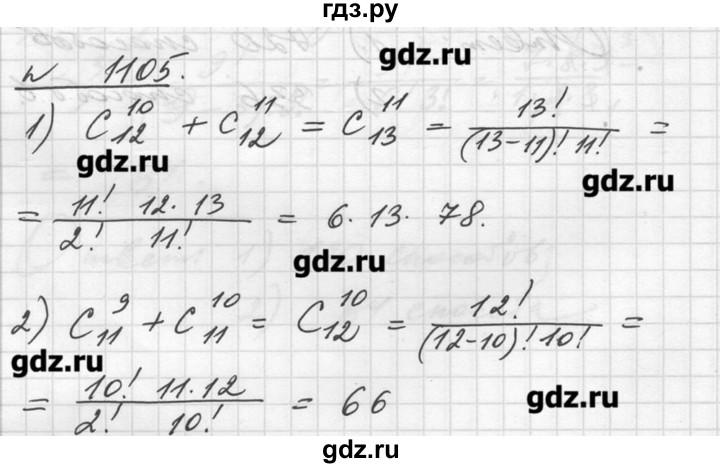 гдз.ру
№ 1105. gdz.ru
1) C₁₂¹⁰ + C₁₂¹¹ = C₁₃¹¹ = 13! / (13-11)! 11! =
gdz.ru gdz.ru
= 11! 12·13 / 2! 11! = 6·13· 78.
gdz.ru
2) C₁₁⁹ + C₁₁¹⁰ = C₁₂¹⁰ = 12! / (12-10)! 10! =
gdz.ru
= 10! 11·12 / 2! 10! = 66
gdz.ru
gdz.ru